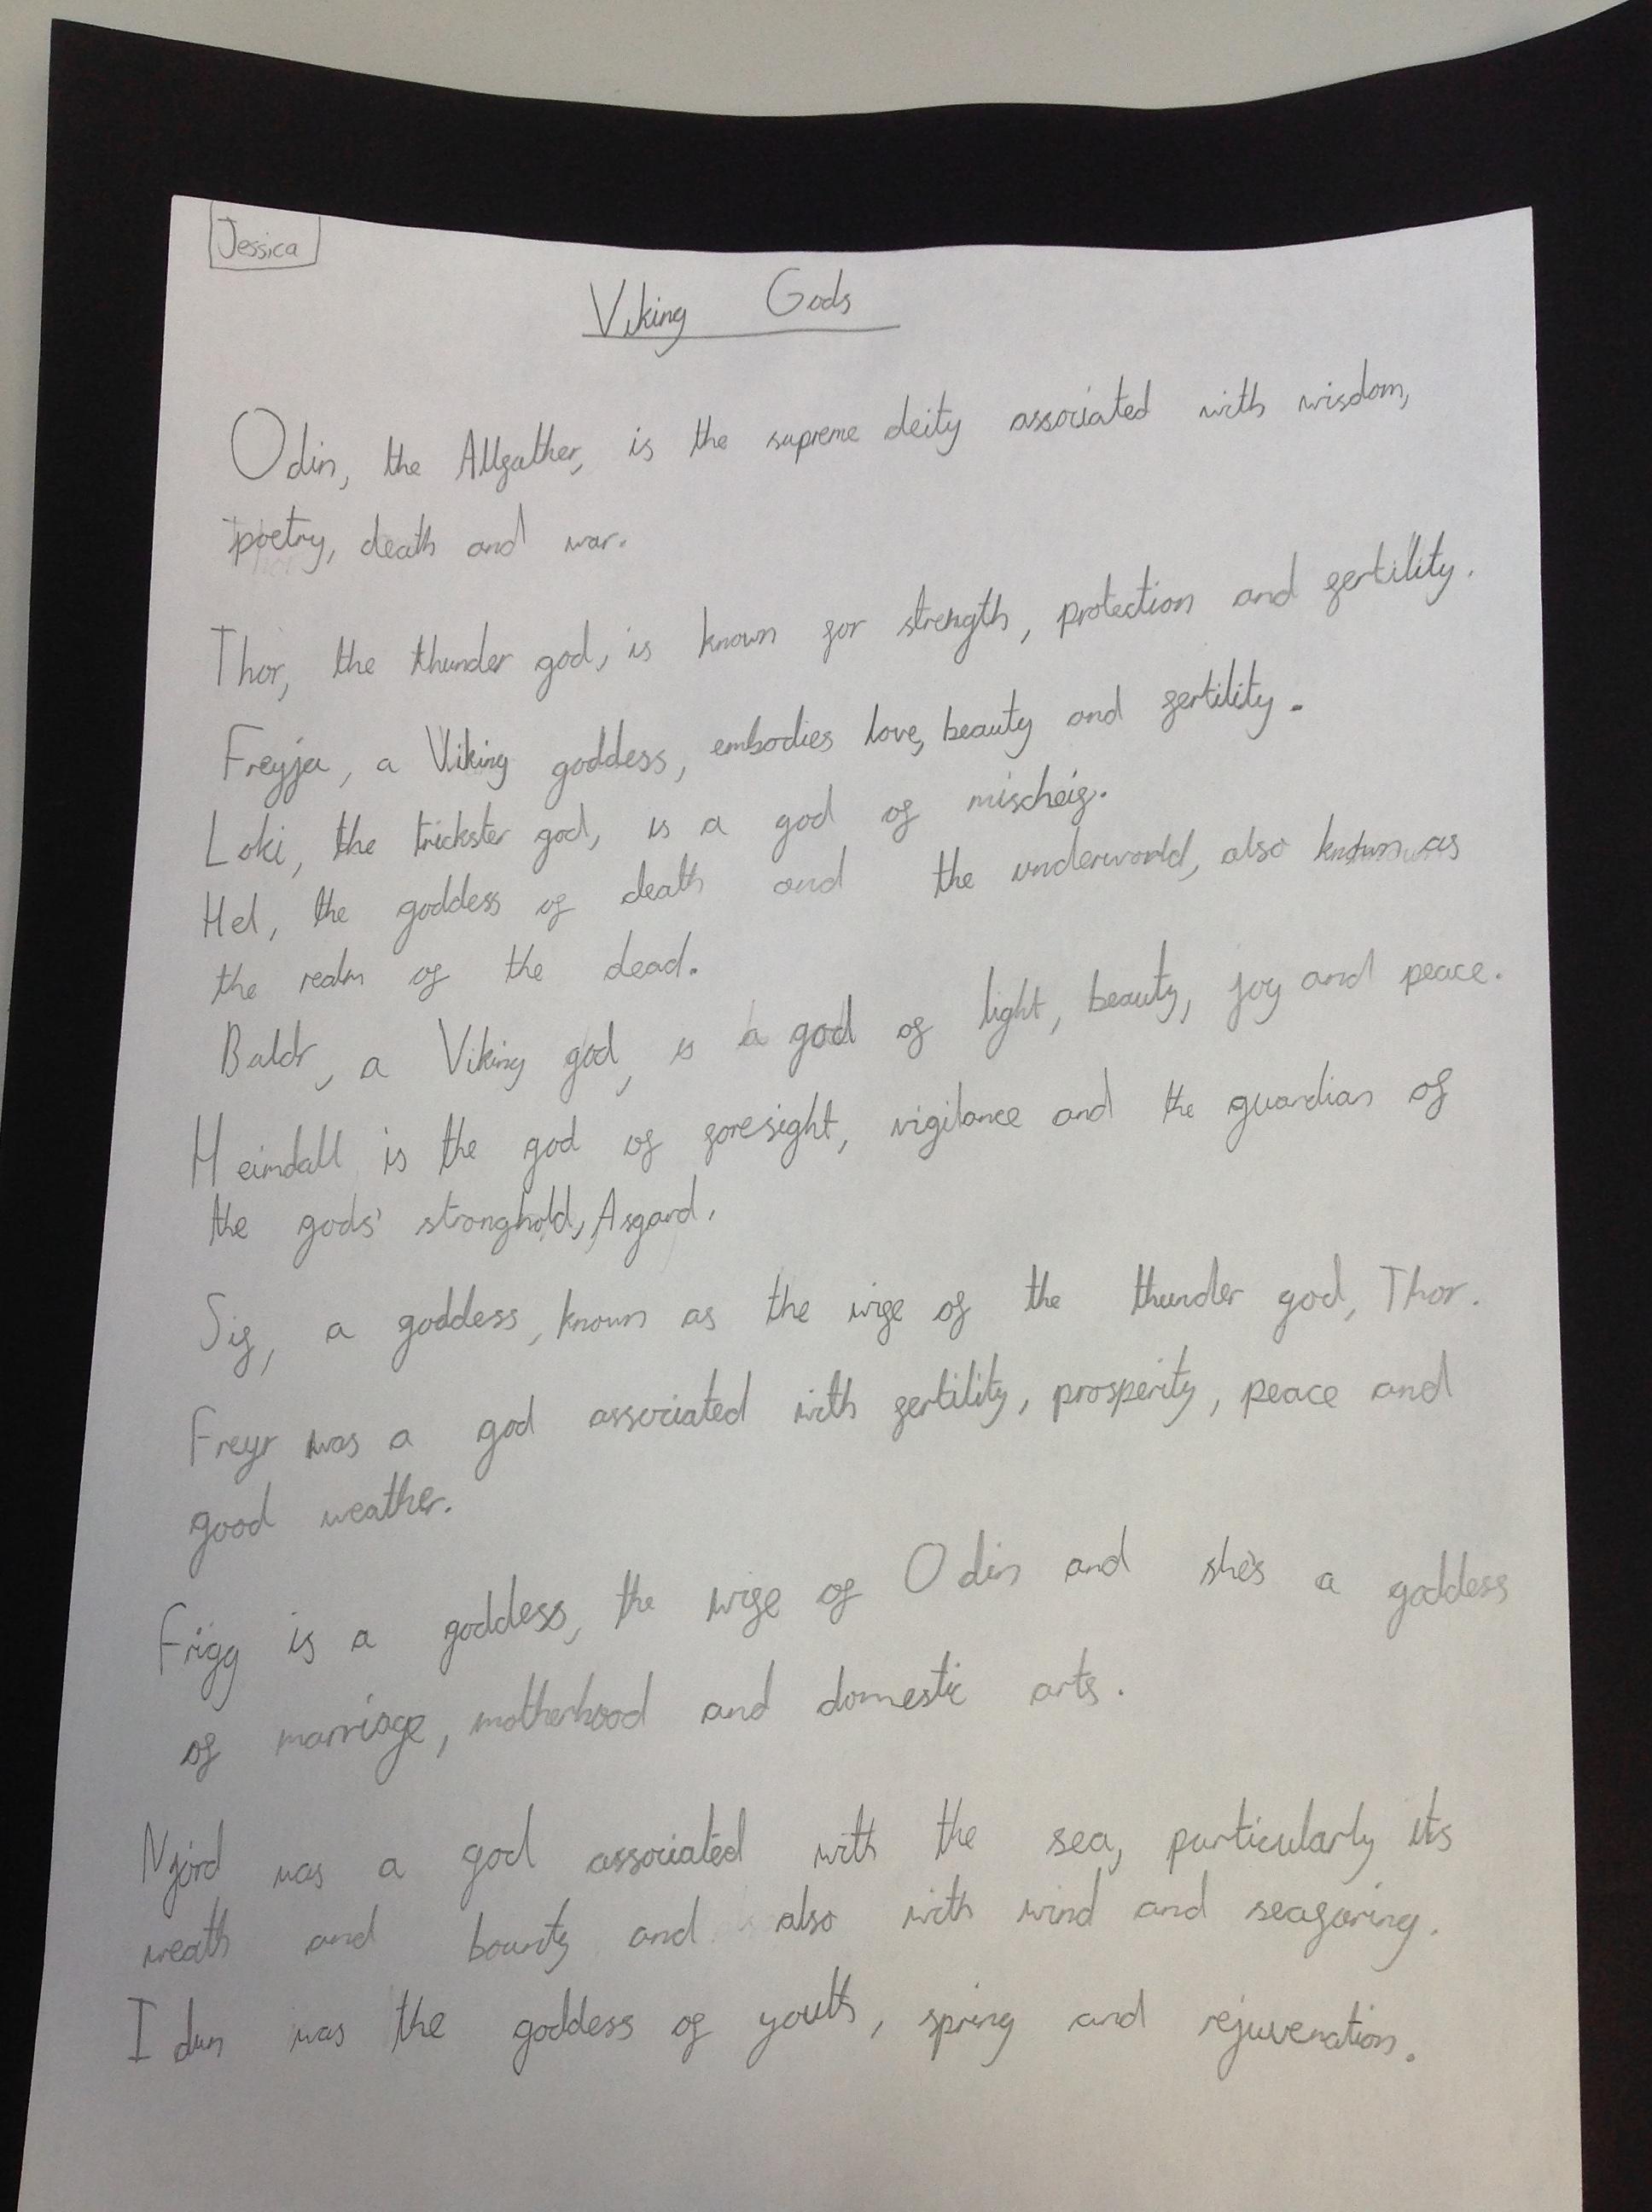 Jessica
Viking Gods
Odin, the Allfather, is the supreme deity associated with wisdom,
poetry, death and war.
Thor, the thunder god, is known for strength, protection and fertility.
Freyja, a Viking goddess, embodies love, beauty and fertility.
Loki, the trickster god, is a god of mischeif.
Hel, the goddess of death and the underworld, also known as
the realm of the dead.
Baldr, a Viking god, is a god of light, beauty, joy and peace.
Heimdall is the god of foresight, vigilance and the guardian of
the gods' stronghold, Asgard.
Sif, a goddess, known as the wife of the thunder god, Thor.
Freyr was a god associated with fertility, prosperity, peace and
good weather.
Frigg is a goddess, the wife of Odin and she's a goddess
of marriage, motherhood and domestic arts.
Njord was a god associated with the sea, particularly its
weath and bounty and also with wind and seafaring.
Idun was the goddess of youth, spring and rejuvenation.